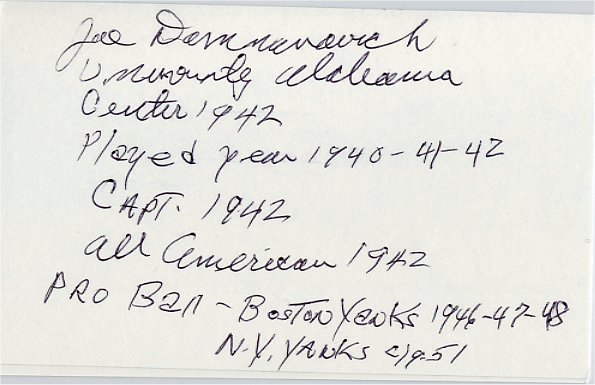 Joe Domnanovich
University Alabama
Center 1942
Played year 1940-41-42
CAPT. 1942
All American 1942
PRO Ball - Boston Yanks 1946-47-48
N.Y. YANKS 49-51